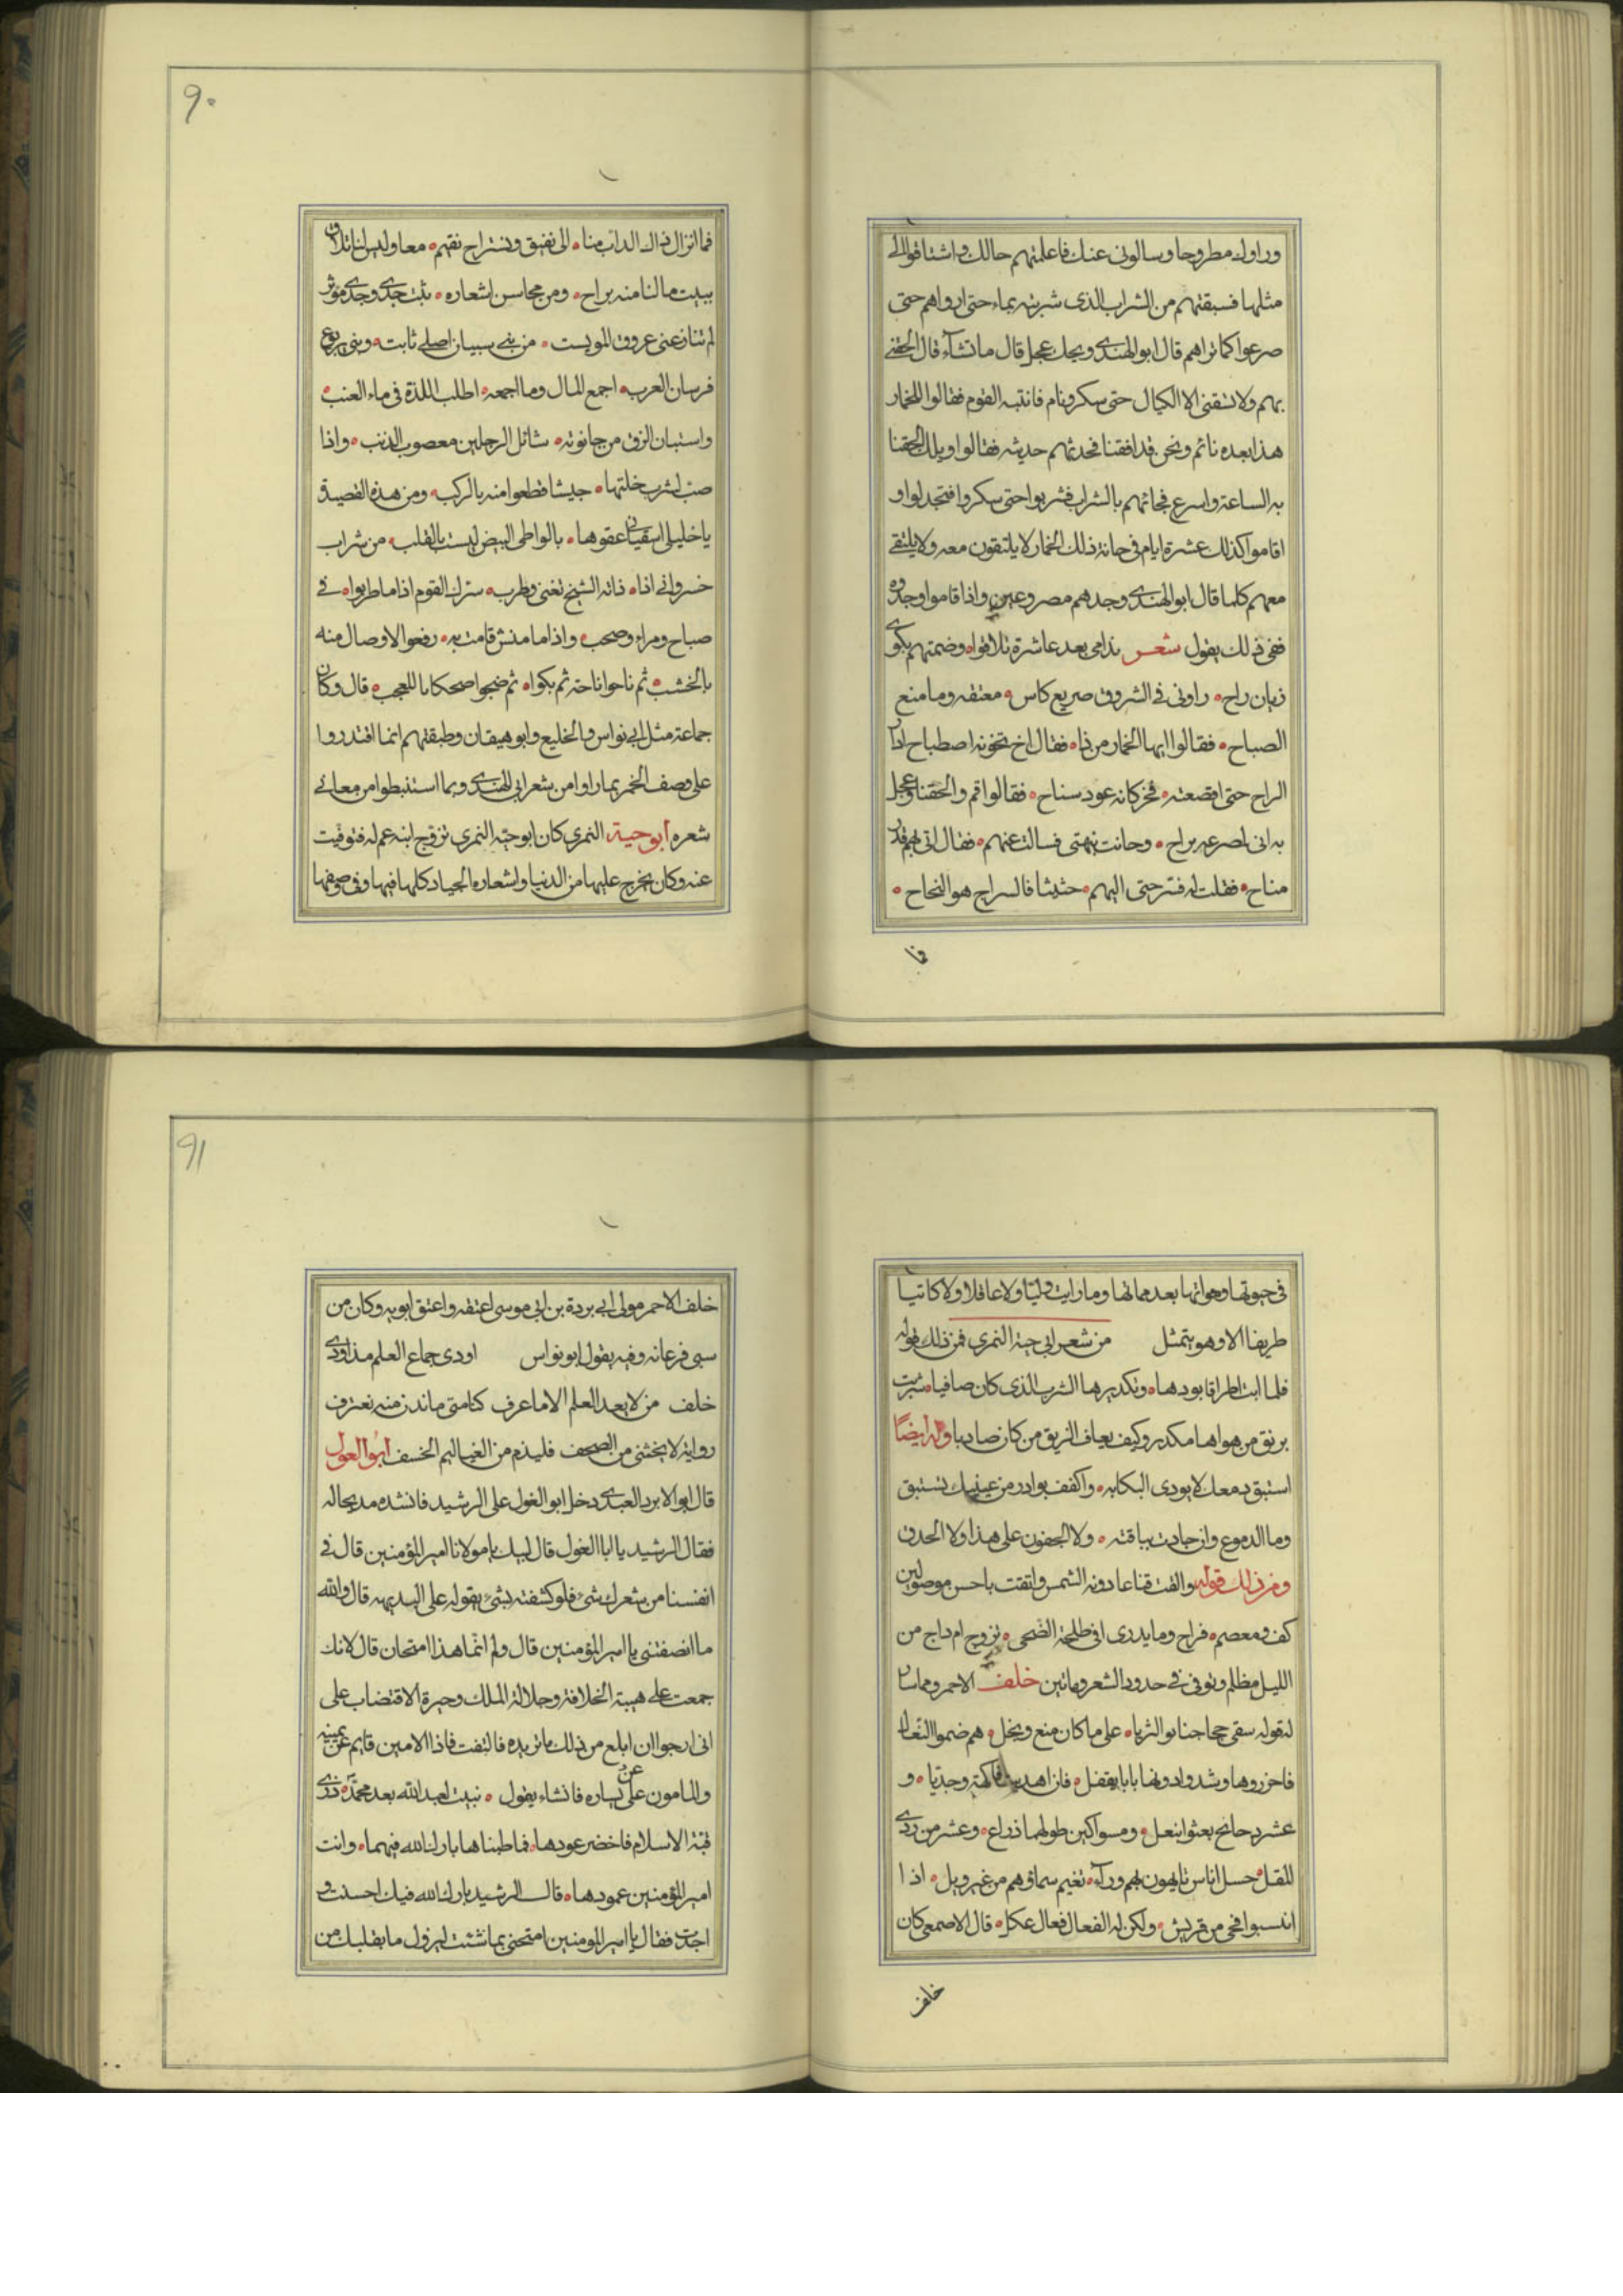 وراوك مطروحا وسالونى عنك فاعلمتهم حالك واشتاقوا الى
مثلها فسبقتهم من الشراب الذى شربته بماء حتى ارواهم حتى
صرعوا كما تراهم قال ابو الهندى ويحك عجل قال ما تشآء قال الحقنى
بهم ولا تسقنى الا الكيال حتى سكر ونام فانتبه القوم فقالوا للخمار
هذا بعده نائم ونحن قد افقنا فحدثهم حديثه فقالوا ويلك الحقنا
به الساعة واسرع فجائهم بالشراب فشربوا حتى سكروا فتجدلوا و
اقاموا كذلك عشرة ايام فى حانة ذلك الخمار لا يلتقون معه ولا يلتقى
معهم كلما قال ابو الهندى وجدهم مصروعين واذا قاموا وجدوه
ففى ذلك يقول شعر ندامى بعد عاشرة تلاقوا وضمتهم بكوى
زيان راح راونى فى الشروق صريع كاس معتقه وما منع
الصباح فقالوا ايها الخمار من ذا فقال اخ تخونه اصطباح ادار
الراح حتى اقصعته فخر كانه عود سناح فقالوا قم والحقنا وعجل
به انى لصرعه براح وحانت نبهتى فسالت عنهم فقال اتى لهم قدر
مناح فقلت له فترحتى اليهم حثيثا فالسراح هو النجاح
فما
٩٠
فما انزال ذاك الداب منا الى نفيق ونستراح نقيم معا وليس لنا تلاق
ببيت ما لنا منه براح ومن محاسن اشعاره ثبت جدى وجدى موثر
لم تنازعنى عروق الموبست من بنى سبيان اصلى ثابت وبنى يربوع
فرسان العرب اجمع المال وما اجمعه اطلب اللذة فى ماء العنب
واستبان الزق من حانوته شائل الرجلين معصوب الذنب واذا
صب لشرب خلتها جيشا قطعوا منه بالركب ومن هذه القصيدة
ياخليلى اسقيانى عقوها بالواطى البيض ليست بالقلب من شراب
خسروانى اذا ذاقه الشيخ تغنى وطرب سترك القوم اذا ما طربوا فى
صباح ومراء وصحب واذا ما منش قامت به رفعوا الاوصال منه
بالخشب ثم ناحوا ناحة ثم بكوا ثم ضجوا ضحكا يا للعجب قال وكان
جماعة مثل ابى نواس والخليع وابو هيقان وطبقتهم انما اقتدروا
على وصف الخمر بما راوا من شعر ابى الهندى وبما استنبطوا من معانى
شعره ابو حية النمرى كان ابو حية النمرى تزوج ابنة عم له فتوفيت
عنه وكان يخرج عليها من الدنيا واشعاره الجياد كلها فيها وفى وصفها
فى حيوتها وهوائها بعد مماتها وما رايت وليا ولا عاقلا ولا كاتبا
ظريفا الا وهو يتمثل من شعر ابى حية النمرى فمن ذلك قوله
فلما ابت الا طراقا بودها وتكديرها الشرب الذى كان صافيا شربت
برنق من هواها مكدر وكيف يعاف الزيق من كان صاديا وله ايضًا
استبق دمعك لا يودى البكا به واكفف بوادر من عينيك تستبق
وما الدموع وان جادت بباقته ولا الجفون على هذا ولا الحدق
ومن ذلك قوله والقت قناعا دونه الشمس واتقت باحسن موصولين
كف ومعصم فراح وما يدرى افى طلحة الضحى تزوح ام داج من
الليل مظلم وتوفى فى حدود الشعر وماتين خلف الاحمر ومما سار
له قوله سقى حجاجنا نو الثريا على ما كان منع وبخل هم ضموا النعال
فاحرزوها وشدوا دونها بابا بقفل فان اهديت فاكهة وجديا و
عشر دجائج بعثوا بنعل ومسواكين طولهما ذراع وعشر من ردى
للقل حسل اناس تايهون لهم ورآء تغيم سماؤهم من غير وبل اذا
انتسبوا فحى من قريش ولكن له الفعال فعال عكل قال الاصمعى كان
خلف
٩١
خلف الاحمر مولى ابى بردة بن ابى موسى اعتقه واعتق ابويه وكان من
سبى فرغانه وفيه يقول ابو نواس اودى جماع العلم مذ اودى
خلف من لا يعد العلم الا ما عرف كنا متى ما ندن منه نغترف
رواية لا يجتنى من الصحف قليذم من الغياليم الخسف ابو الغول
قال ابو الابرد العبدى دخل ابو الغول على الرشيد فانشده مديحا له
فقال الرشيد يا ابا الغول قال لبيك يا مولانا امير المؤمنين قال فى
انفسنا من شعرك شىء فلو كشفته بشىء بقوله على البديهه قال والله
ما انصفتنى يا امير المؤمنين قال ولم انما هذا امتحان قال لانك
جمعت على هيبة الخلافة وجلالة الملك وحيرة الاقتضاب على
انى ارجوا ان ابلع من ذلك ما تريده فالتفت فاذا الامين قايم عن يمينه
والمامون على عن يساره فانشاء يقول نبيت لعبد الله بعد محمد ذرى
قبة الاسلام فاخضر عودها فما طبناها بارك الله فيهما وانت
امير المؤمنين عمودها قال الرشيد بارك الله فيك احسنت و
اجدت فقال يا امير المومنين امتحنى بما شئت ليزول ما بقلبك من